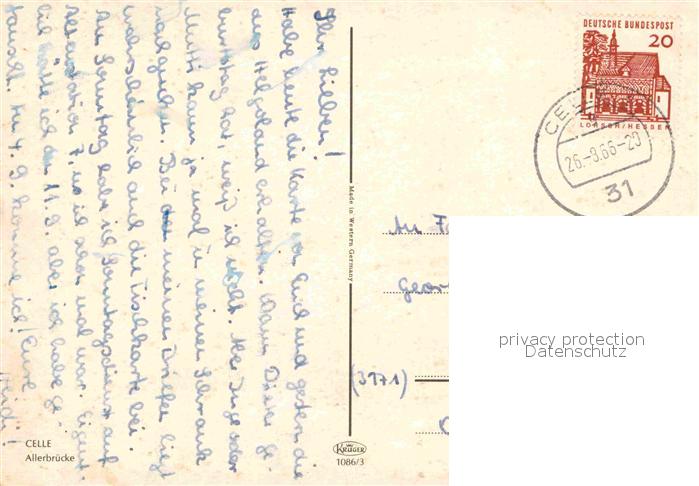 Ihr Lieben!
Habe heute die Karte von Euch und gestern die
aus Helgoland erhalten. Wann Dieter Ge-
burtstag hat, weiß ich nicht. Aber Inge oder
Mutti kann ja mal in meinen Schrank
mal gucken. Bei den meinen Briefen liegt
wahrscheinlich auch die Tischkarte bei.
Am Sonntag habe ich Sonntagsdienst auf
Station 7, wo ich schon mal war. Eigent-
lich hätte ich den 11.9. aber ich habe ge-
tauscht. Am 4.9. komme ich! Eure
Heidi!
CELLE
Allerbrücke
Made in Western Germany
KRÜGER
1086/3
DEUTSCHE BUNDESPOST
20
LORSCH/HESSEN
26.-8.66-20
31
An Fa
Geor
(3171)
privacy protection
Datenschutz